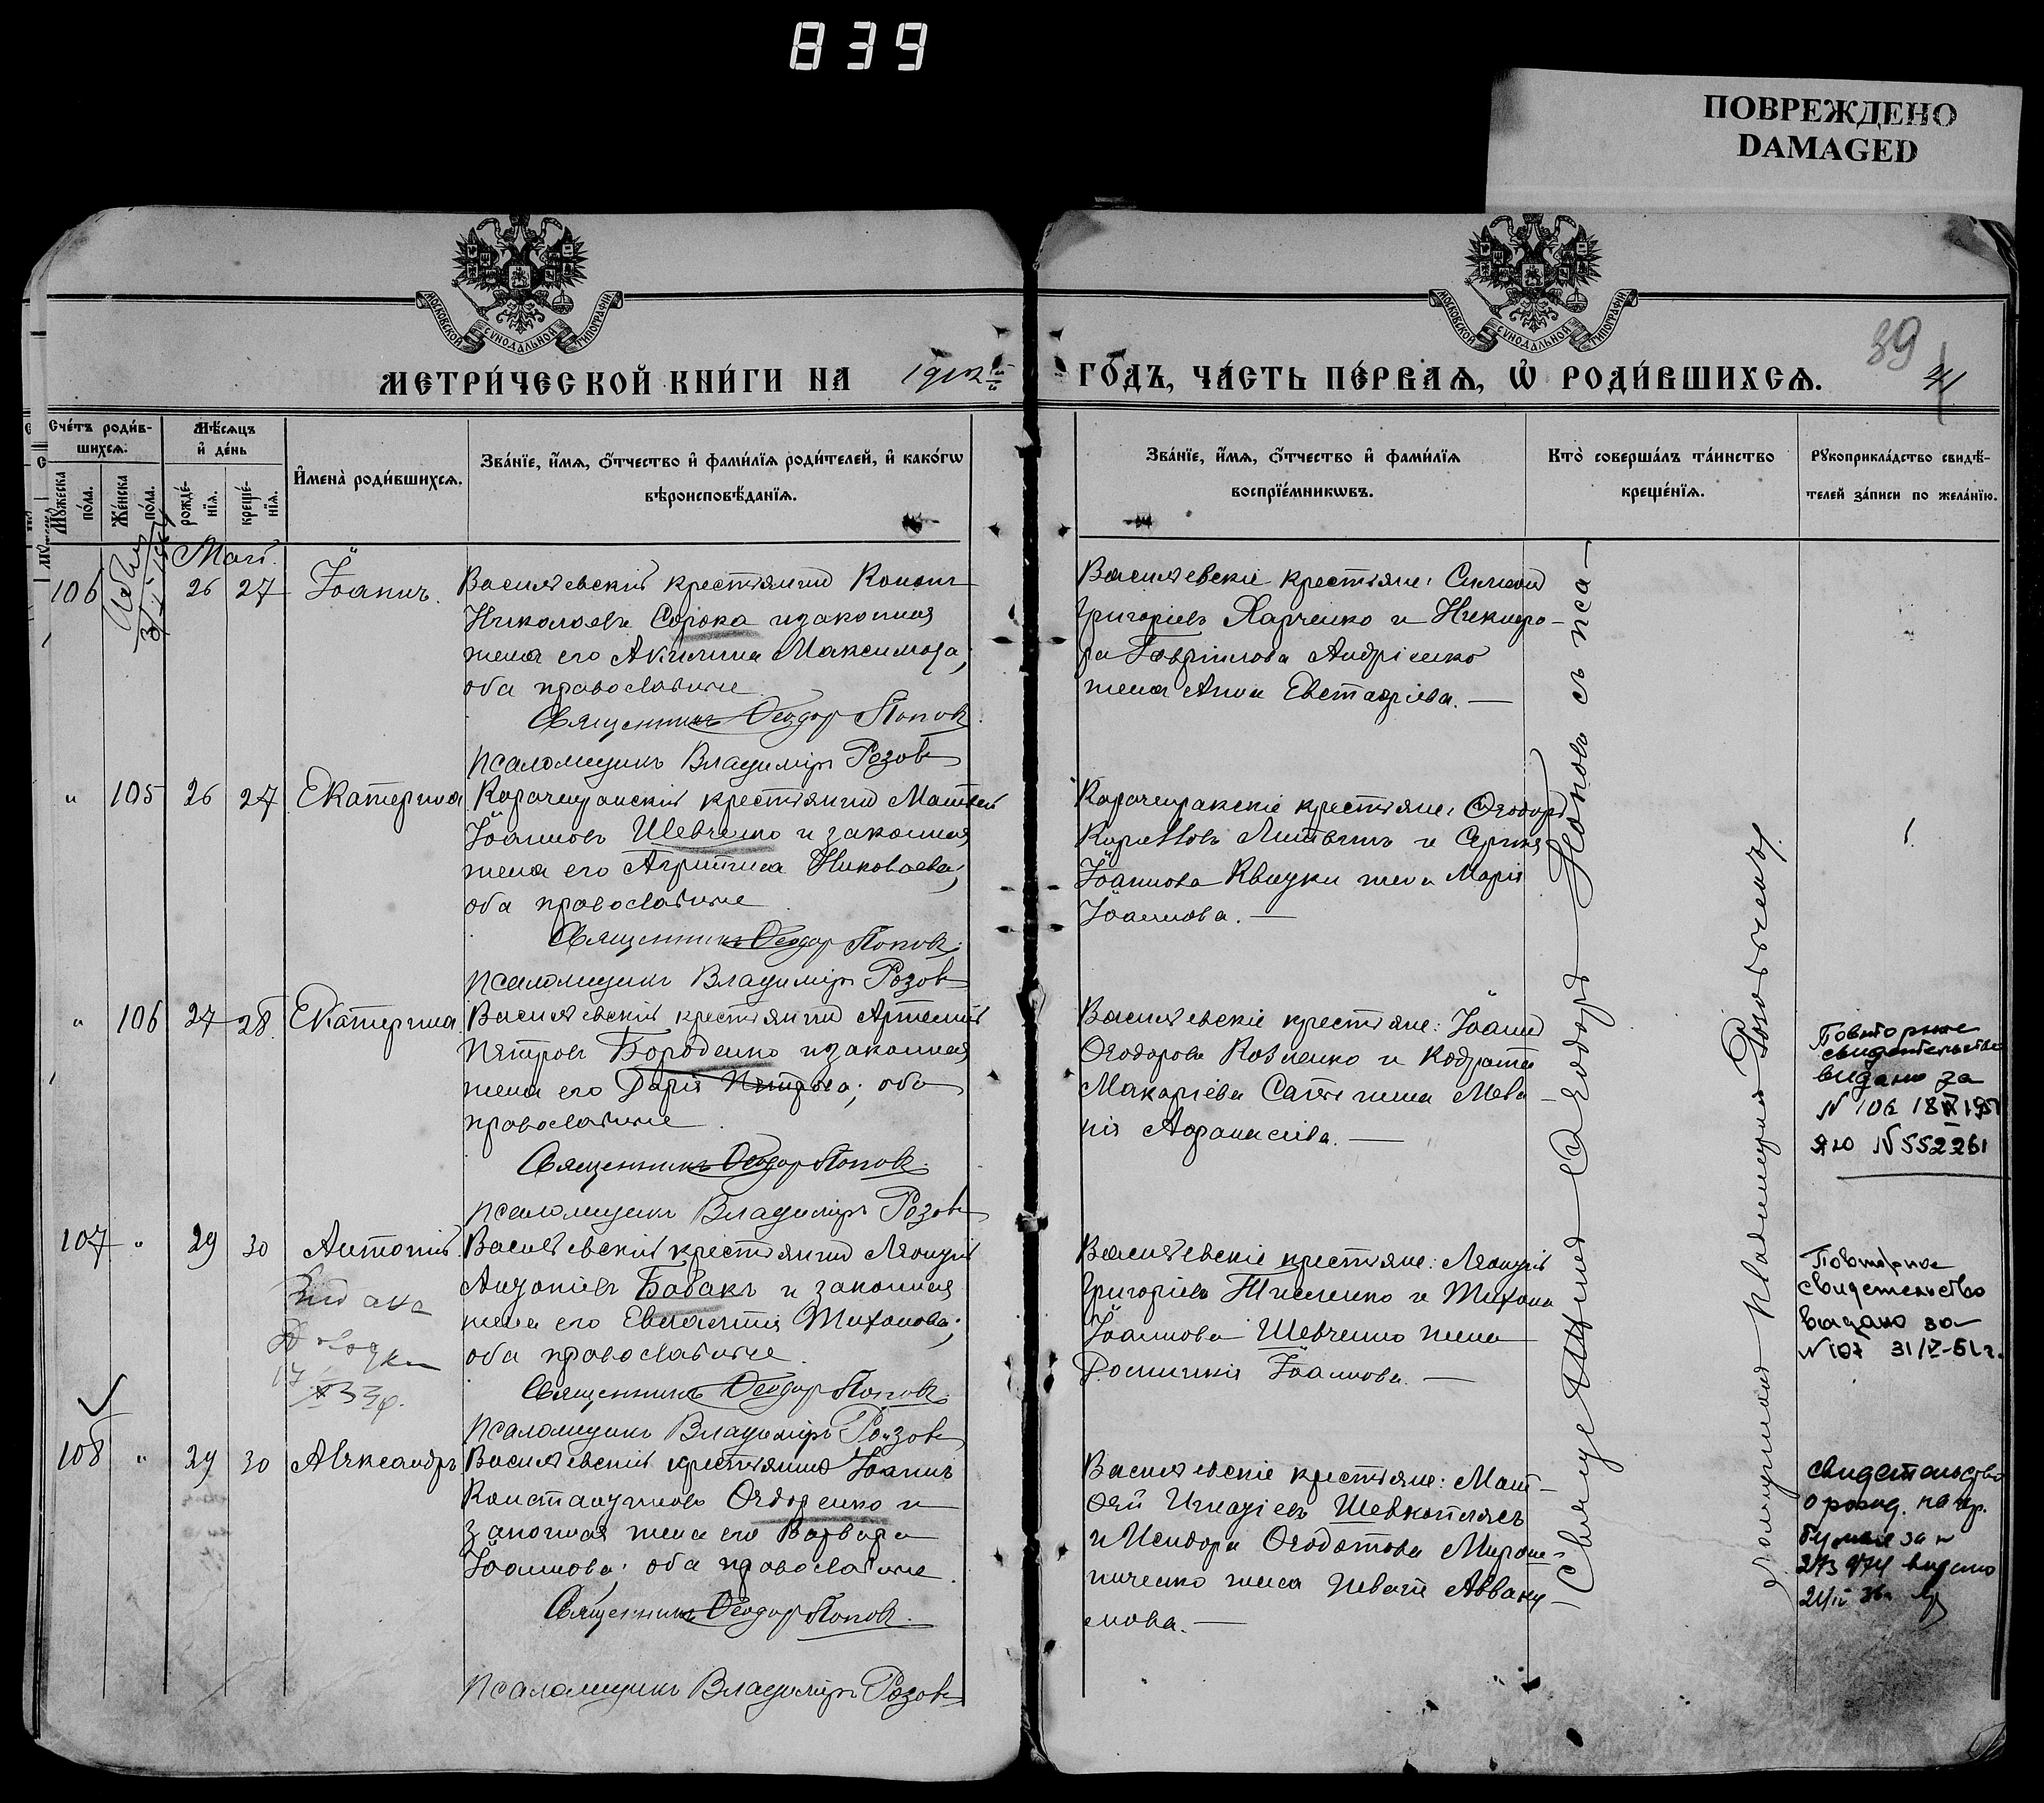 839
ПОВРЕЖДЕНО
DAMAGED
МОСКОВСКОЙ СУНОДАЛЬНОЙ ТИПОГРАФІИ
МОСКОВСКОЙ СУНОДАЛЬНОЙ ТИПОГРАФІИ
39
МЕТРИ́ЧЕСКОЙ КНИ́ГИ НА 1912 й
ГО́ДЪ, ЧА́СТЬ ПЕ́РВАѦ, Ѡ҆ РОДИ́ВШИХСѦ.
Сче́тъ роди́в-
шихсѧ.
Мꙋ́жеска
по́ла.
Же́нска
по́ла.
Мѣ́сѧцъ
и҆ де́нь
рожде́-
нїѧ.
креще́-
нїѧ.
И҆мена̀ роди́вшихсѧ.
Зва́нїе, и҆́мѧ, ѻ҆́тчество и҆ фами́лїѧ роди́телей, и҆ како́гѡ
вѣроисповѣ́данїѧ.
Зва́нїе, и҆́мѧ, ѻ҆́тчество и҆ фами́лїѧ
воспрїе́мникѡвъ.
Кто̀ соверша́лъ та́инство
креще́нїѧ.
Рꙋкоприкла́дство свидѣ́-
телей за́писи по жела́нїю.
Май.
106 26 27 Іоаннъ.
Васильевскій крестьянинъ Кононъ
Николаевъ Сорока и законная
жена его Акилина Максимова;
оба православные
Священникъ Ѳеодоръ Поповъ.
Псаломщикъ Владиміръ Розовъ
Васильевскіе крестьяне: Симеонъ
Григоріевъ Харченко и Никифо-
ра Гавріилова Андріенко
жена Анна Евстафіева. —
" 105 26 27 Екатерина
крестьянинъ Матвей
Іоанновъ Шевченко и законная
жена его Агриппина Николаева;
оба православные
Священникъ Ѳеодоръ Поповъ.
Псаломщикъ Владиміръ Розовъ
крестьяне: Ѳеодоръ
и Сергія
Іоаннова жена Марія
Іоаннова. —
" 106 27 28 Екатерина.
Васильевскій крестьянинъ Артемій
Петровъ Бороденко и законная
жена его Дарія Петрова; оба
православные
Священникъ Ѳеодоръ Поповъ.
Псаломщикъ Владиміръ Розовъ
Васильевскіе крестьяне: Іоаннъ
Ѳеодоровъ и Кодрата
Макаріева жена Мела-
нія Аѳанасіева. —
Повторное
свидетельство
видано за
N 106 18
ЯЮ N 552261
107 " 29 30 Антоній.
Васильевскій крестьянинъ
Бабакъ и законная
жена его Евлампія Тихонова;
оба православные.
Священникъ Ѳеодоръ Поповъ.
Псаломщикъ Владиміръ Розовъ
Васильевскіе крестьяне:
Григоріевъ и Тихона
Іоаннова Шевченко жена
Іоаннова. —
Повторное
свидетельство
видано за
N 107 31/V-51 г.
108 " 29 30 Александръ
Васильевскій крестьянинъ Іоаннъ
Константиновъ Ѳедоренко и
законная жена его Варвара
Іоаннова; оба православные.
Священникъ Ѳеодоръ Поповъ.
Псаломщикъ Владиміръ Розовъ
Васильевскіе крестьяне: Мат-
ѳей Игнатіевъ Шевкоплясъ
и Исидора Ѳедотова Мирош-
ниченко жена Авваку-
мова. —
свидетельство
о рожд. на гр.
видано
Священникъ Ѳеодоръ Поповъ съ пса-
ломщикомъ Владиміромъ Розовымъ.